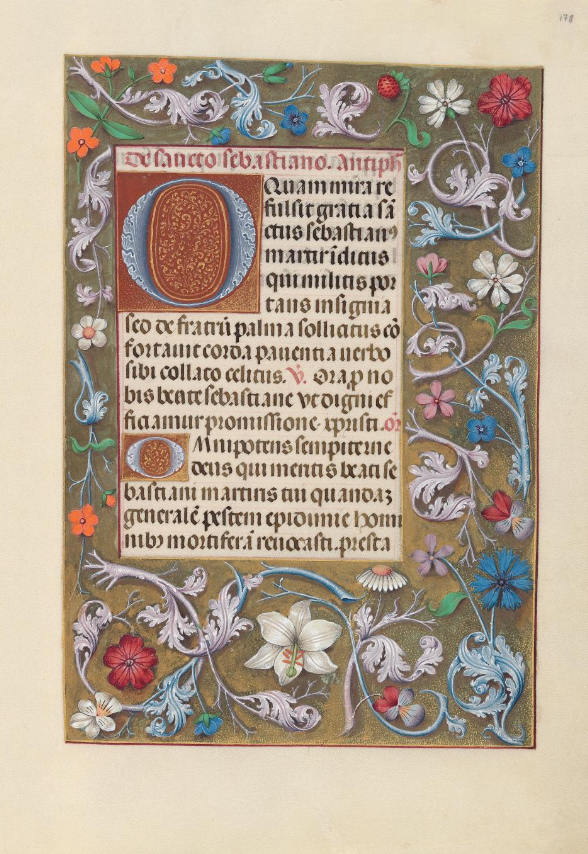 178
De sancto sebastiano. Antiph
O Quam mira re
fulsit gratia sā
ctus sebastianꝰ
martir īclitus
qui militis por
tans insignia
sed de fratrū palma sollicitus cō
fortauit corda pauentia uerbo
sibi collato celitus. ℣. Ora p no
bis beate sebastiane vt digni ef
ficiamur promissione xpristi. or
OMnipotens sempiterne
deus qui meritis beati se
bastiani martiris tui quandaꝫ
generalē pestem epidimie homi
nibꝫ mortiferā reuocasti. presta